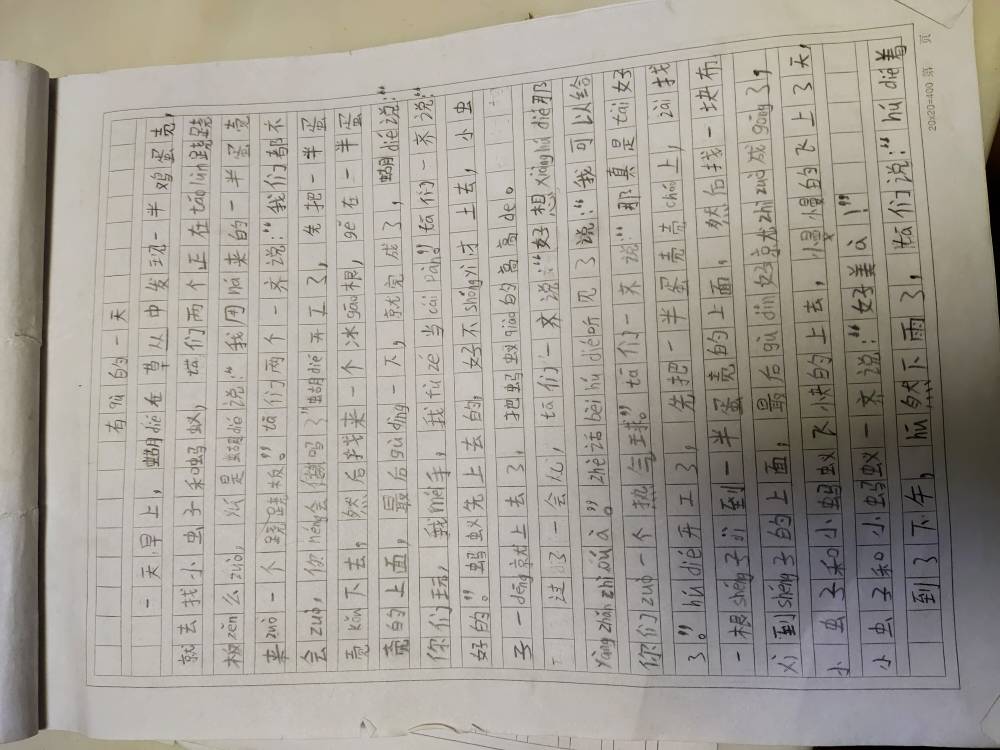 有qù的一天
一天,早上,蝴dié在草丛中发现一半鸡蛋壳,
就去找小虫子和蚂蚁,他们两个正在tǎo lùn跷跷
板zěn么zuò,于是蝴dié说:“我用ná来的一半蛋壳
来zuò一个跷跷板。”tā们两个一齐说:“我们都不
会zuò,你néng会做吗?”蝴dié开工了,先把一半蛋
壳kòu下去,然后找来一个冰gāo棍,gē在一半蛋
壳的上面,最后gù dìng一下,就完成了,蝴dié说:“
你们玩,我ná手,我fù zé当cái pàn。”tā们一齐说:“
好的。”蚂蚁先上去的,好不róng yì才上去,小虫
子一dēng就上去了,把蚂蚁qiào的高高de。
过了一会儿,tā们一齐说:“好想xiàng hú dié那
yàng zhǎn zhì xiú à。”zhè话bèi hú dié听见了说:“我可以给
你们zuò一个热气球。”tā们一齐说:“那真是tài好
了。”hú dié开工了,先把一半蛋壳cháo上,zài找
一根shéng子jì到一半蛋壳的上面,然后找一块布
xì到shéng子的上面,最后gù dìn好就zhì zuò成gōng了,
小虫子和小蚂蚁飞快的上去,慢慢的飞上了天,
小虫子和小蚂蚁一齐说:“好美à!”
到了下午,hū然下雨了,tā们说:“hú dié着
20x20=400 第 页